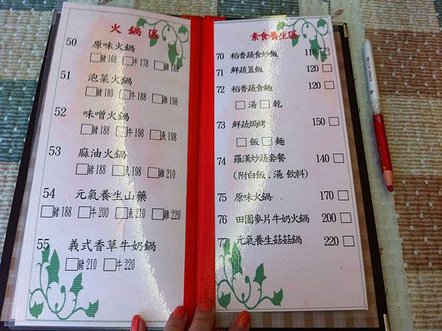 火鍋區
50 原味火鍋
□豬168 □牛178 □雞188
51 泡菜火鍋
□豬188 □牛198 □雞198
52 味噌火鍋
□豬188 □牛198 □魚198
53 麻油火鍋
□豬188 □魚198 □雞210
54 元氣養生山藥
□豬188 □牛200 □魚198 □雞210
55 義式香草牛奶鍋
□豬210 □牛220
素食養生區
70 稻香蔬食炒飯 118□
71 鮮蔬蓋飯 120□
72 稻香蔬食麵 120□
□湯 □乾
73 鮮蔬焗烤 150□
□飯 □麵
74 羅漢炒蔬套餐 140□
(附白飯，湯，飲料)
75 原味火鍋 170□
76 田園麥片牛奶火鍋 200□
77 元氣養生菇菇鍋 220□